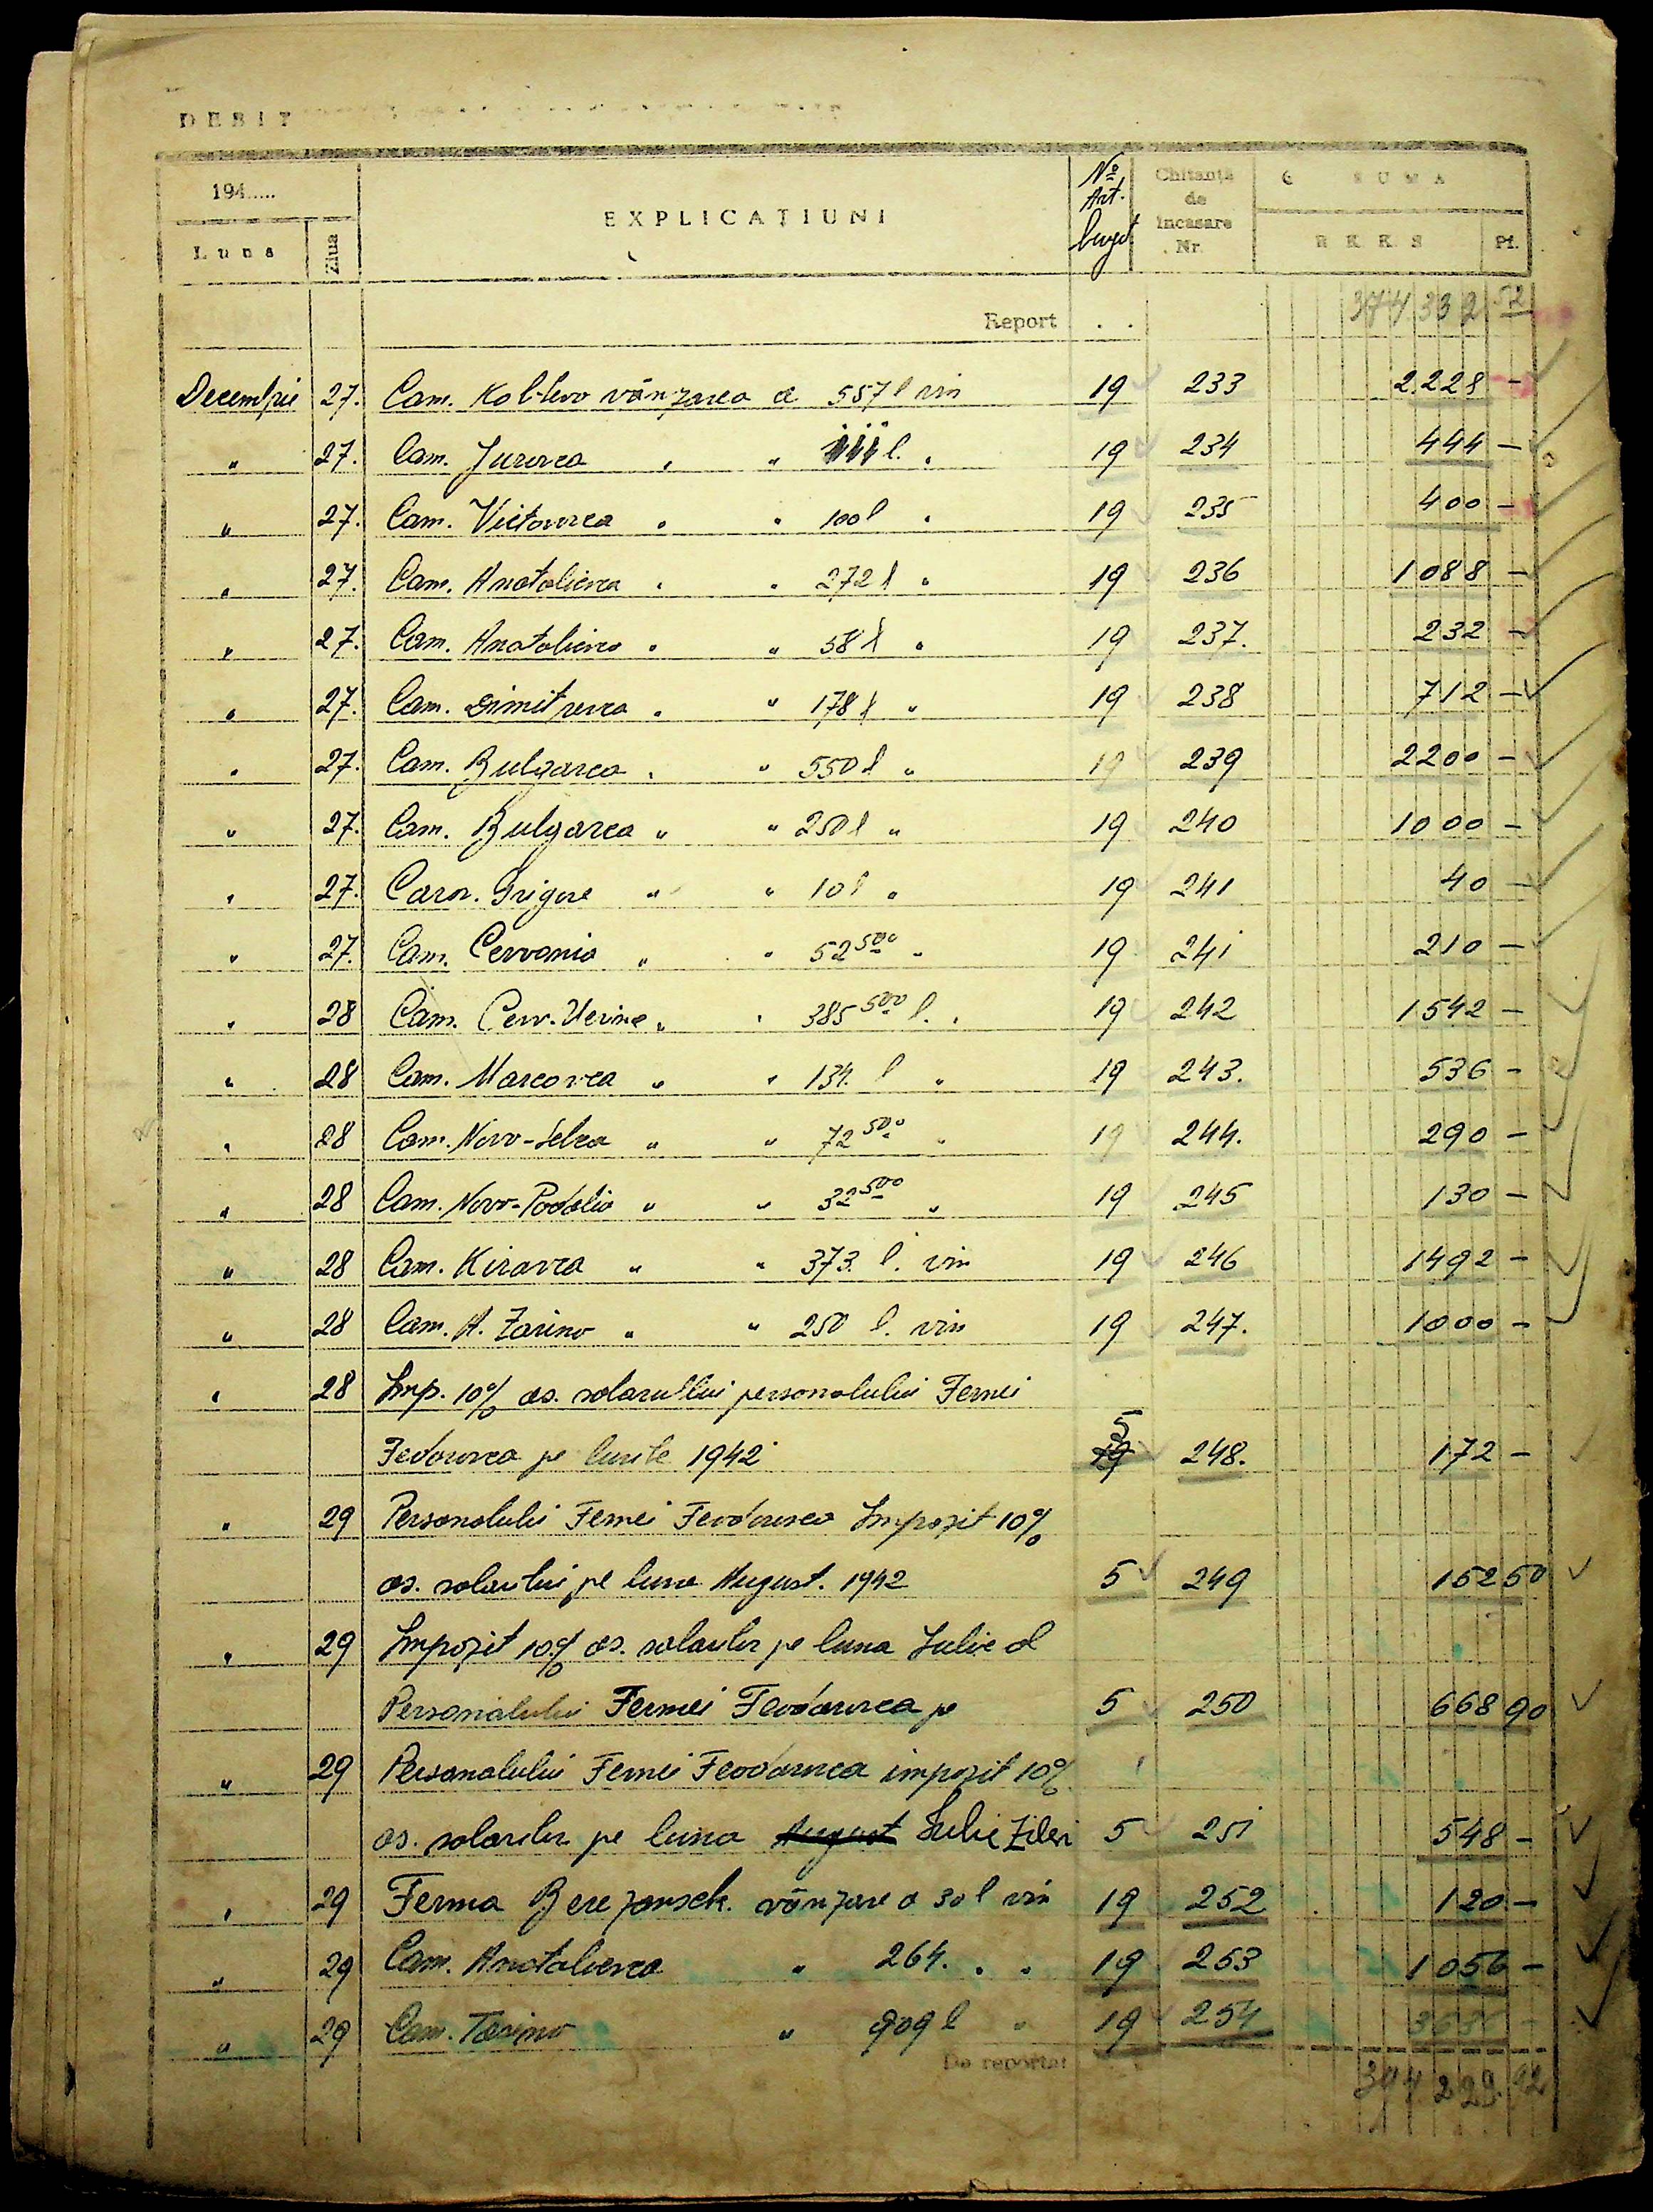 DEBIT
194..... EXPLICAȚIUNI No Art. buget Chitanța de încasare Nr. SUMA
Luna Ziua R K K S Pf.
Report . . 374 339 52
Decembrie 27. Cam. Koblevo vânzarea a 557 l vin 19 233 2228 -
" 27. Cam. Jurovca " " 111 l. " 19 234 444 -
" 27. Cam. Victorovca " " 100 l " 19 235 400 -
" 27. Cam. Anatolievca " " 272 l " 19 236 1088 -
" 27. Cam. Anatolievca " " 58 l " 19 237. 232 -
" 27. Cam. Dimitrevca " " 178 l " 19 238 712 -
" 27. Cam. Bulgarca " " 550 l " 19 239 2200 -
" 27. Cam. Bulgarca " " 250 l " 19 240 1000 -
" 27. Grigore " " 10 l " 19 241 40 -
" 27. Cam. Cervonia " " 52 500 " 19 241 210 -
" 28 Cam. Cerv. " " 385 500 l. " 19 242 1542 -
" 28 Cam. Marcovca " " 134. l " 19 243. 536 -
" 28 Cam. Novo-Selca " " 72 500 " 19 244. 290 -
" 28 Cam. Novo-Podolia " " 32 500 " 19 245 130 -
" 28 Cam. Kirovca " " 373. l. vin 19 246 1492 -
" 28 Cam. A. Zarino " " 250 l. vin 19 247. 1000 -
" 28 Imp. 10% as. salarullui personalului Fermei
Fedorovca pe lunile 1942 5 19 248. 172 -
" 29 Personalului Fermei Feodorovca Impozit 10%
as. salarului pe luna August. 1942 5 249 152 50
" 29 Impozit 10% as. salarilor pe luna Iulie al
Personalului Fermei Feodorovca pe 5 250 668 90
" 29 Personalului Fermei Feodorovca impozit 10%
as. salarilor pe luna August Iulie Zileri 5 251 548 -
" 29 Ferma Berezansck. vânzare a 30 l vin 19 252 120 -
" 29 Cam. Anatolievca " 264. " " 19 253 1056 -
" 29 Cam. Tarino " 909 l " 19 254 3636 -
De reportat 394 229. 92